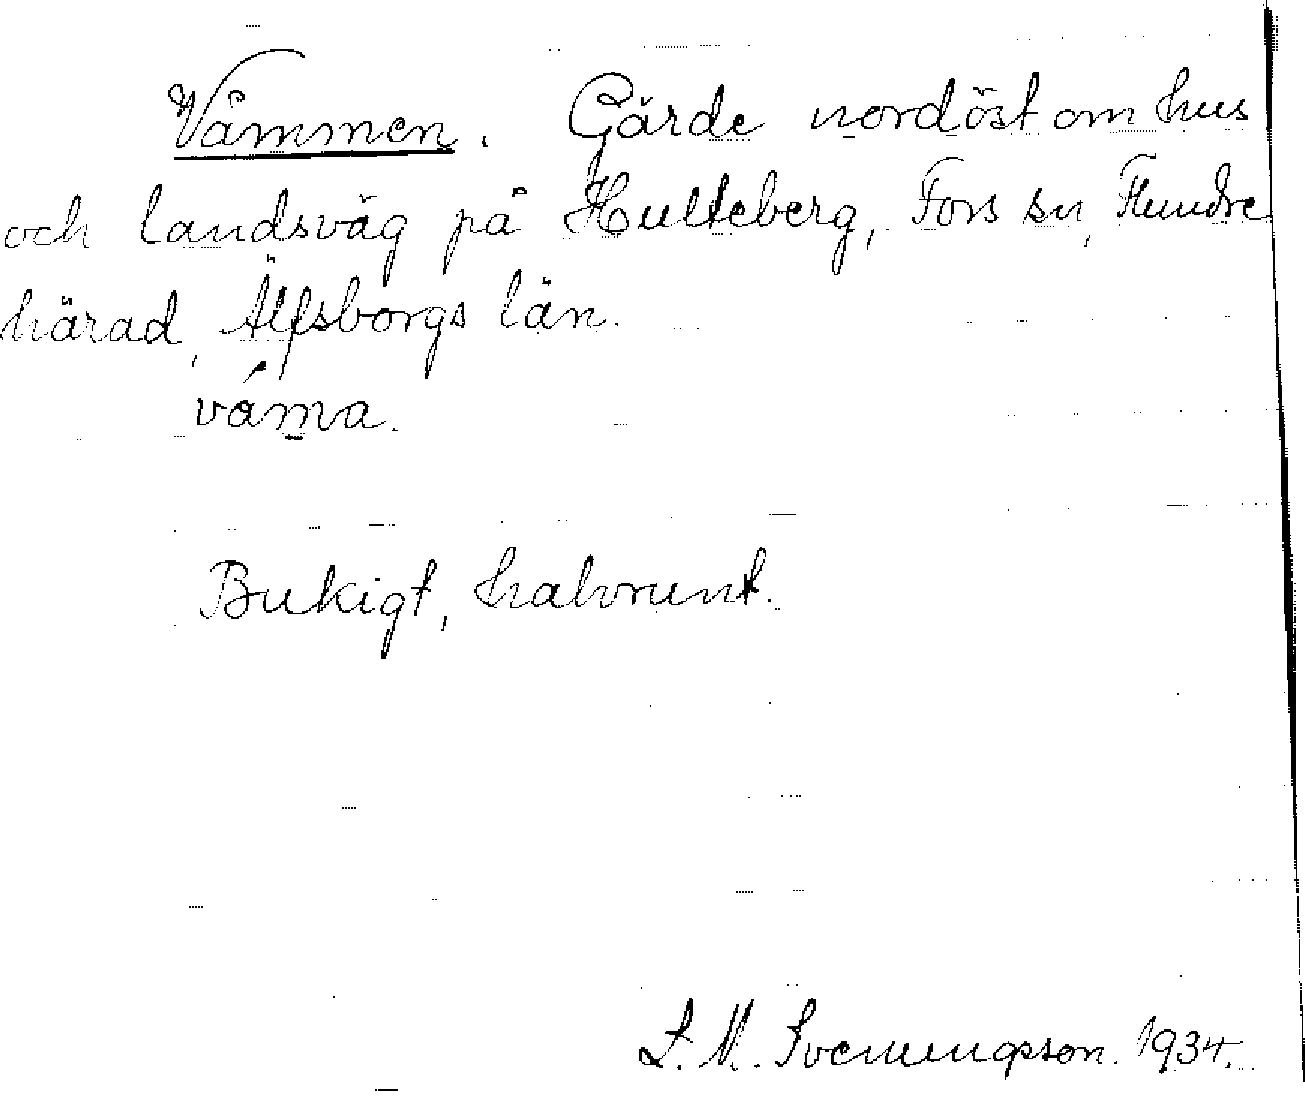 Våmmen. Gärde nordöst om hus
och landsväg på Hulteberg, Fors sn, Flundre
härad, Älfsborgs län.
våma.
Bukigt, halvrunt.
L. M. Svenungsson. 1934.